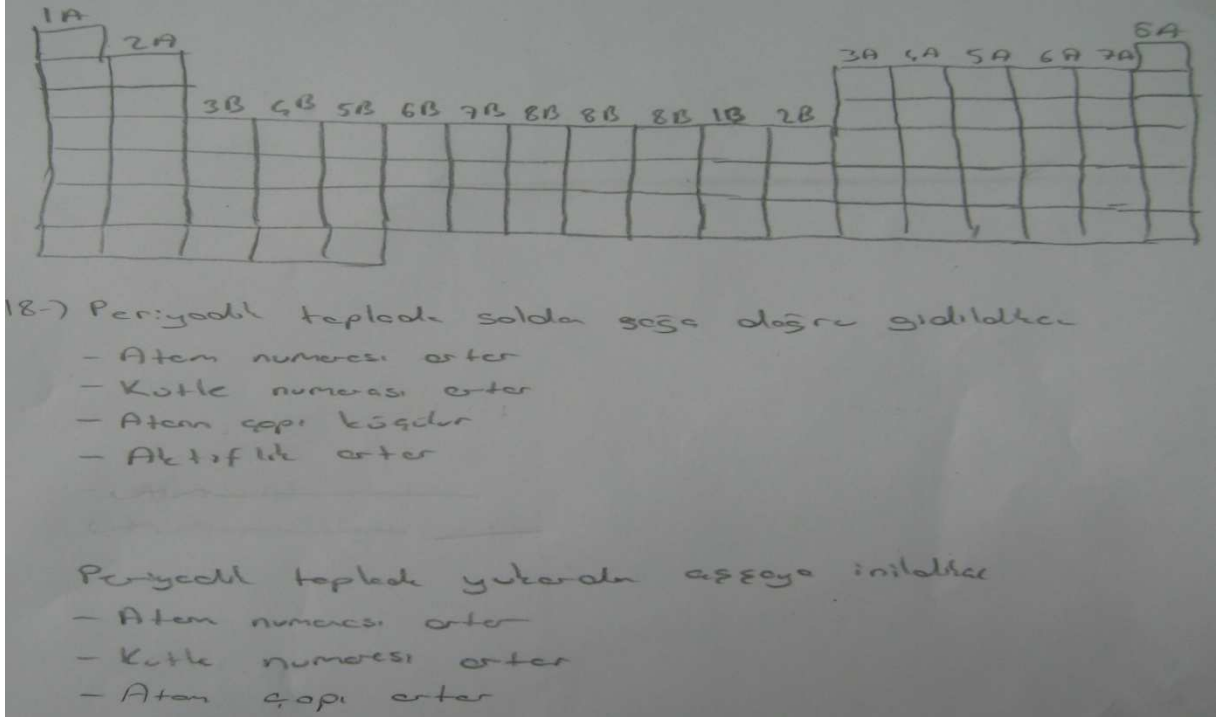 1A
2A
8A
3A 4A 5A 6A 7A
3B 4B 5B 6B 7B 8B 8B 8B 1B 2B
18-) Periyodik taploda solda sağa doğru gidildikce
- Atom numarası artar
- Kütle numarası artar
- Atom çapı küçülür
- Aktiflik artar
Periyodik taploda yukarıda aşşağa inildikce
- Atom numarası artar
- Kütle numarası artar
- Atom çapı artar